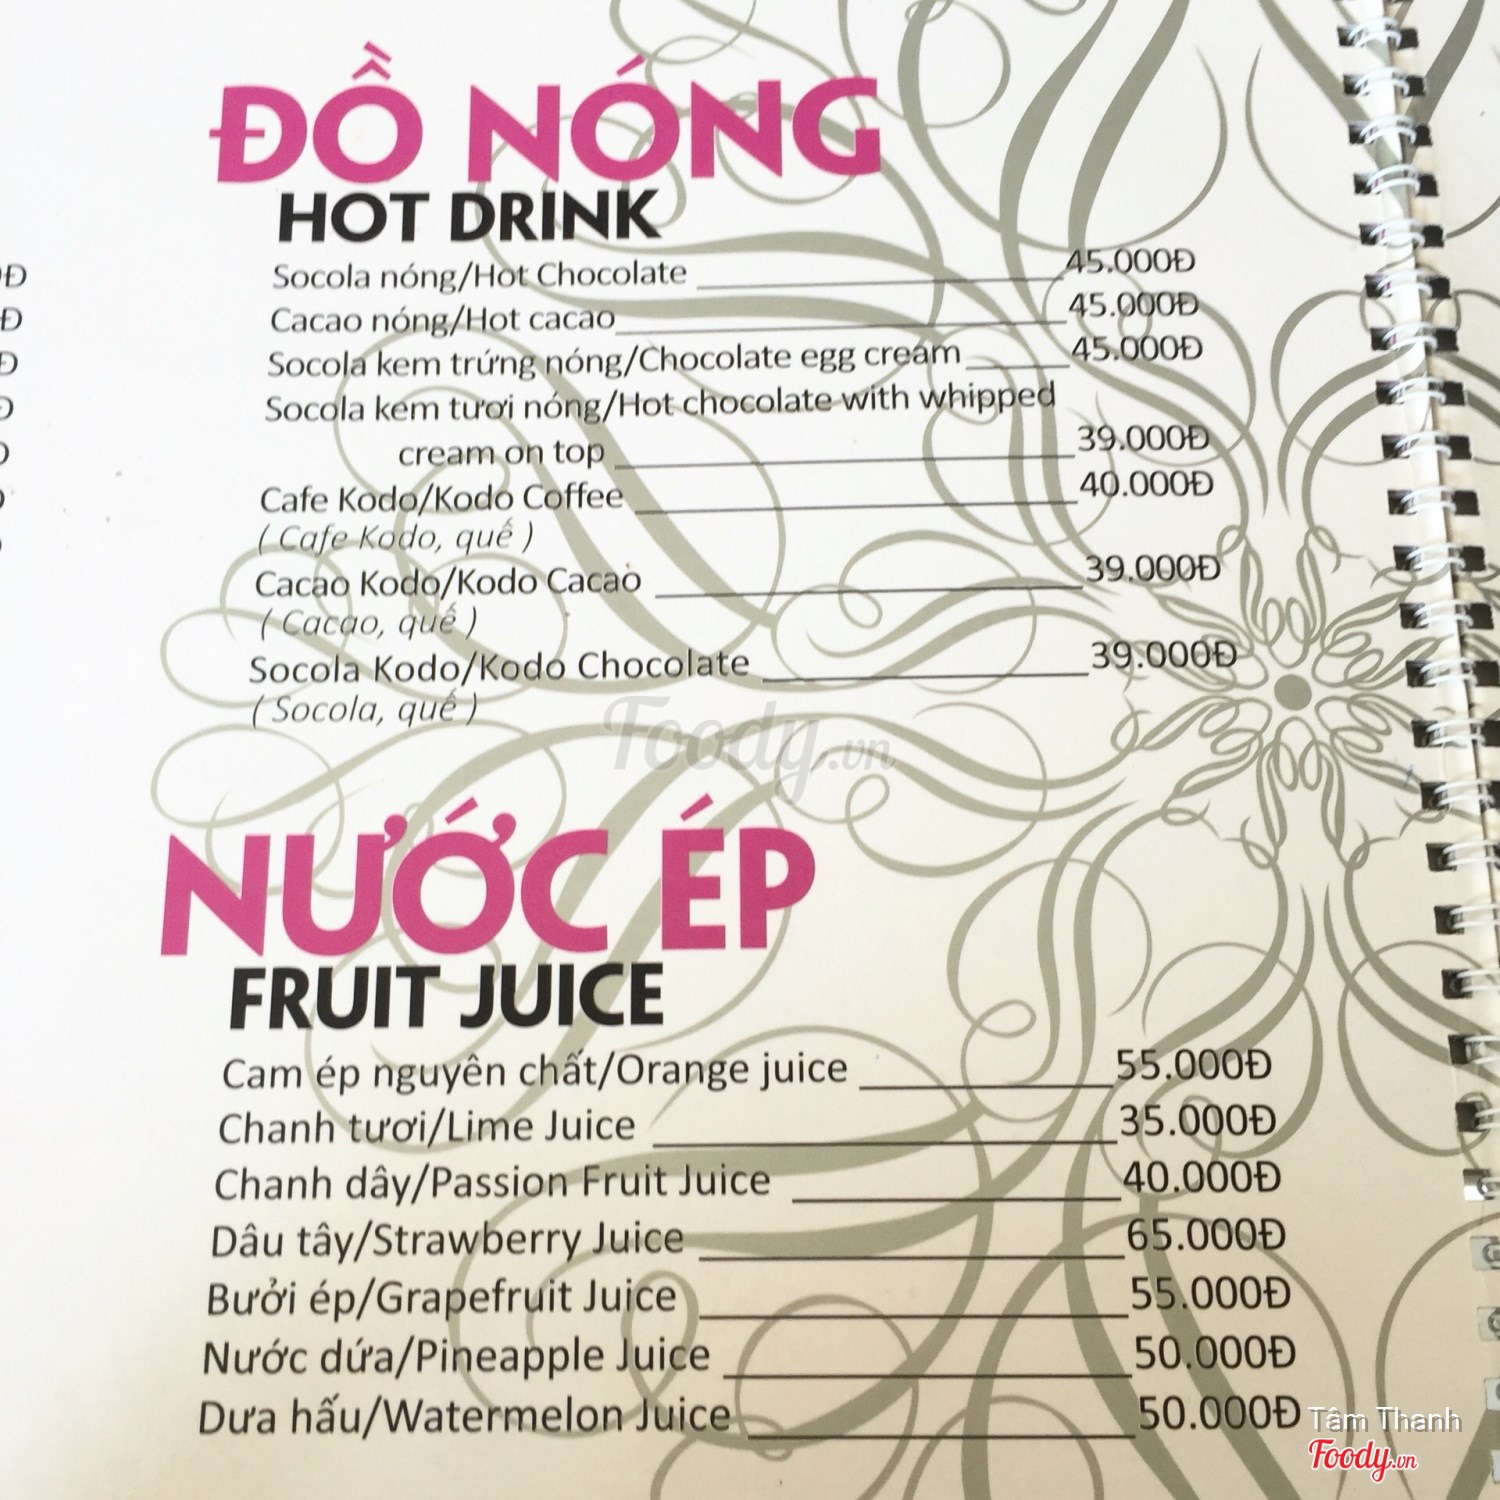 ĐỒ NÓNG
HOT DRINK
Socola nóng/Hot Chocolate 45.000Đ
Cacao nóng/Hot cacao 45.000Đ
Socola kem trứng nóng/Chocolate egg cream 45.000Đ
Socola kem tươi nóng/Hot chocolate with whipped
cream on top 39.000Đ
Cafe Kodo/Kodo Coffee 40.000Đ
( Cafe Kodo, quế )
Cacao Kodo/Kodo Cacao 39.000Đ
( Cacao, quế )
Socola Kodo/Kodo Chocolate 39.000Đ
( Socola, quế )
Foody.vn
NƯỚC ÉP
FRUIT JUICE
Cam ép nguyên chất/Orange juice 55.000Đ
Chanh tươi/Lime Juice 35.000Đ
Chanh dây/Passion Fruit Juice 40.000Đ
Dâu tây/Strawberry Juice 65.000Đ
Bưởi ép/Grapefruit Juice 55.000Đ
Nước dứa/Pineapple Juice 50.000Đ
Dưa hấu/Watermelon Juice 50.000Đ
Tâm Thanh
Foody.vn